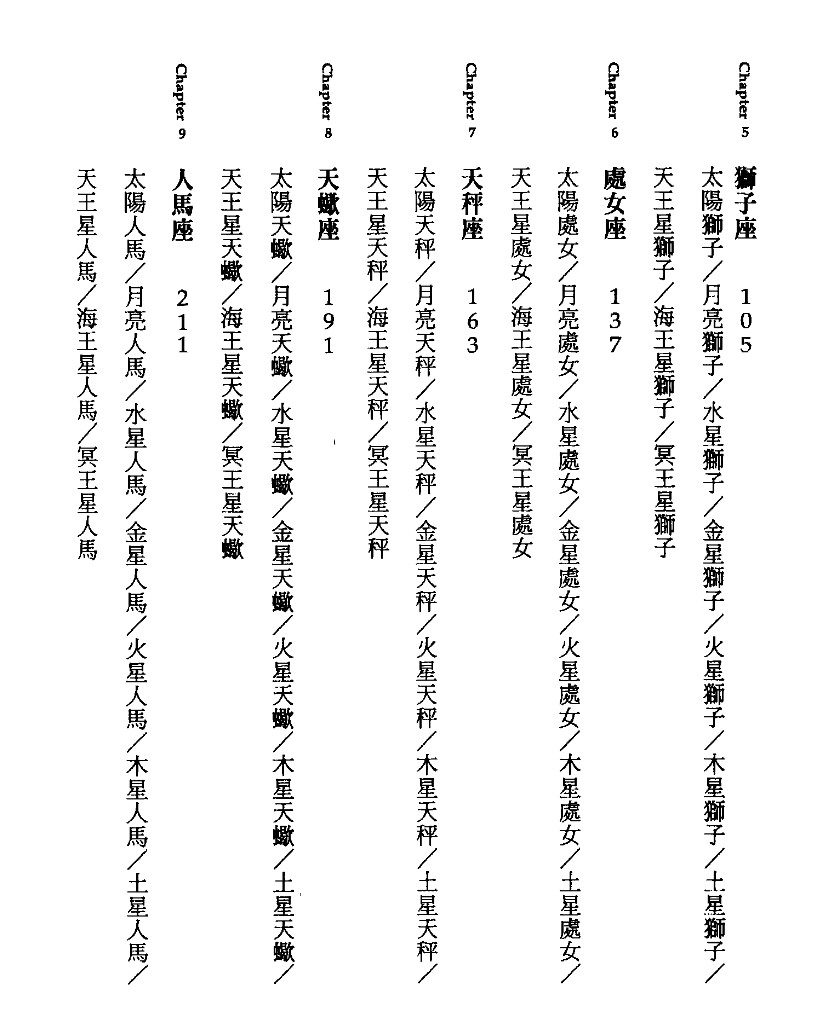 Chapter 5 獅子座 105
太陽獅子／月亮獅子／水星獅子／金星獅子／火星獅子／木星獅子／土星獅子／
天王星獅子／海王星獅子／冥王星獅子
Chapter 6 處女座 137
太陽處女／月亮處女／水星處女／金星處女／火星處女／木星處女／土星處女／
天王星處女／海王星處女／冥王星處女
Chapter 7 天秤座 163
太陽天秤／月亮天秤／水星天秤／金星天秤／火星天秤／木星天秤／土星天秤／
天王星天秤／海王星天秤／冥王星天秤
Chapter 8 天蠍座 191
太陽天蠍／月亮天蠍／水星天蠍／金星天蠍／火星天蠍／木星天蠍／土星天蠍／
天王星天蠍／海王星天蠍／冥王星天蠍
Chapter 9 人馬座 211
太陽人馬／月亮人馬／水星人馬／金星人馬／火星人馬／木星人馬／土星人馬／
天王星人馬／海王星人馬／冥王星人馬